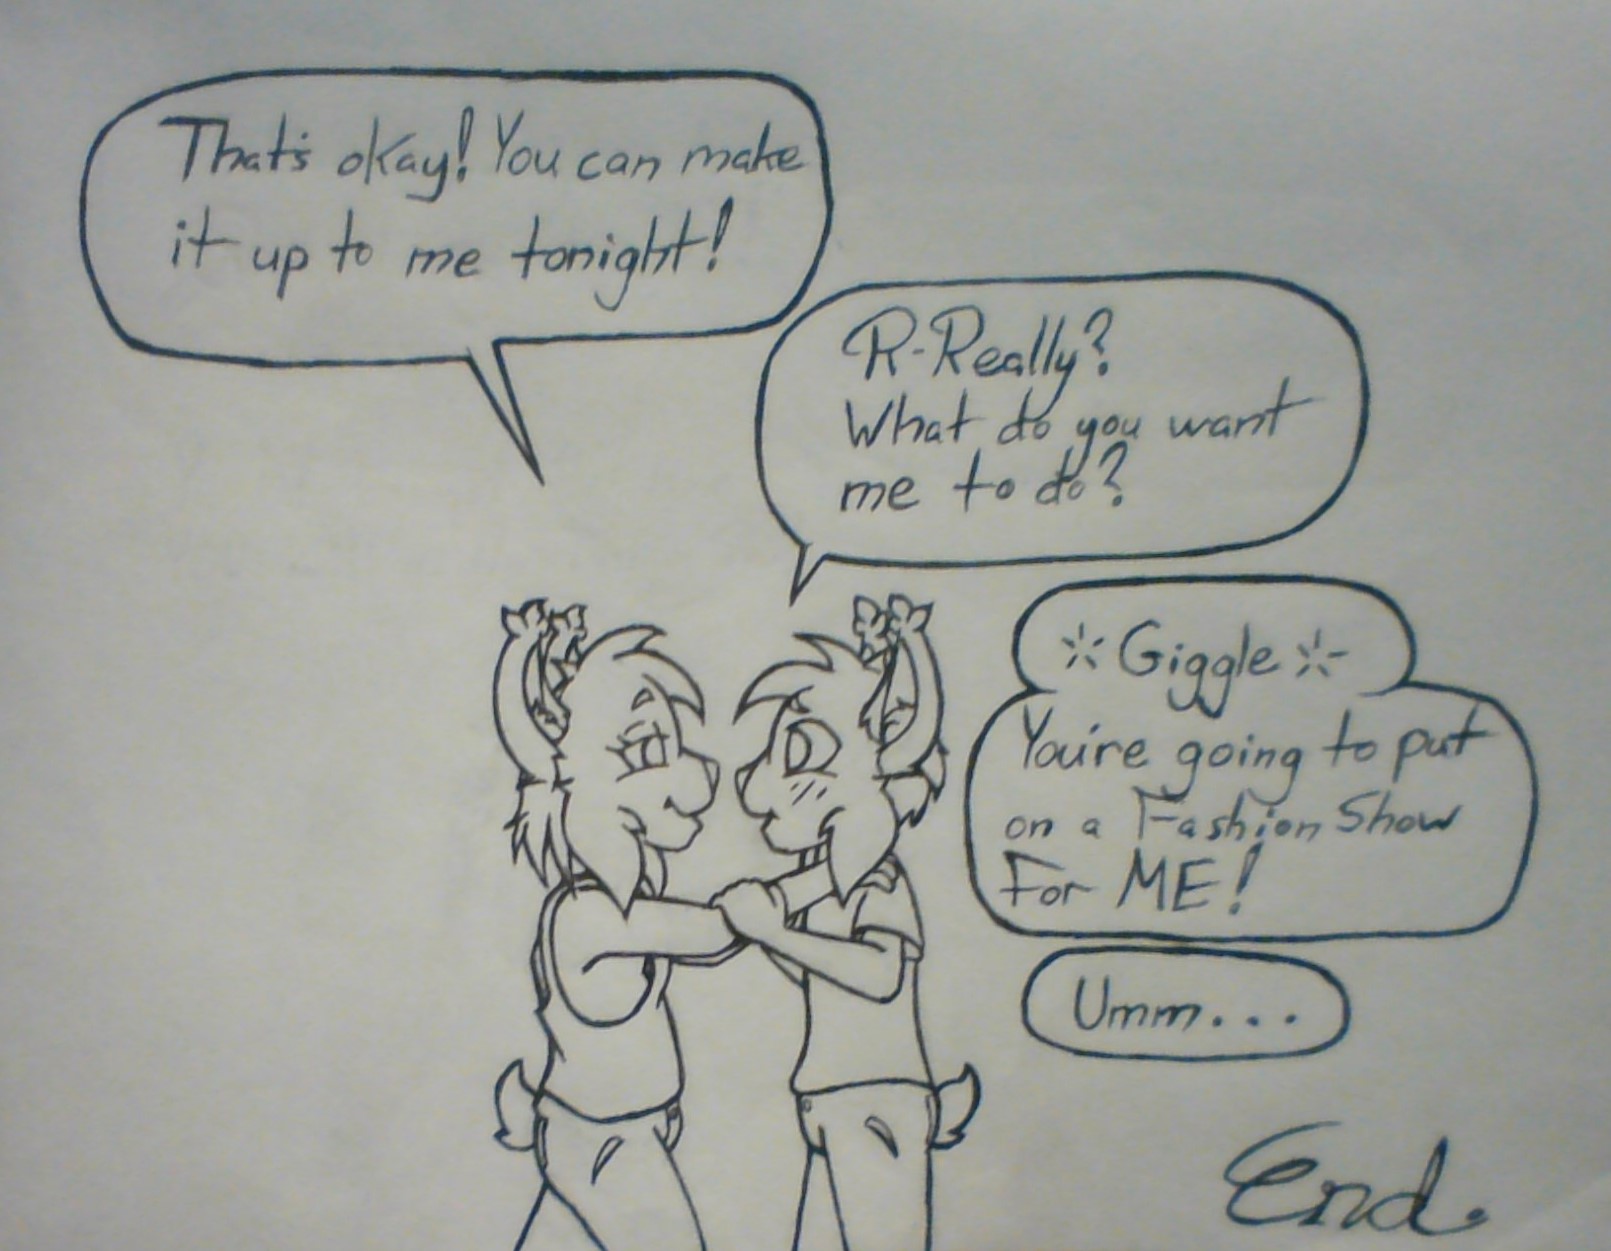 That's okay! You can make
it up to me tonight!
R-Really?
What do you want
me to do?
*Giggle*
You're going to put
on a Fashion Show
For ME!
Umm...
End.